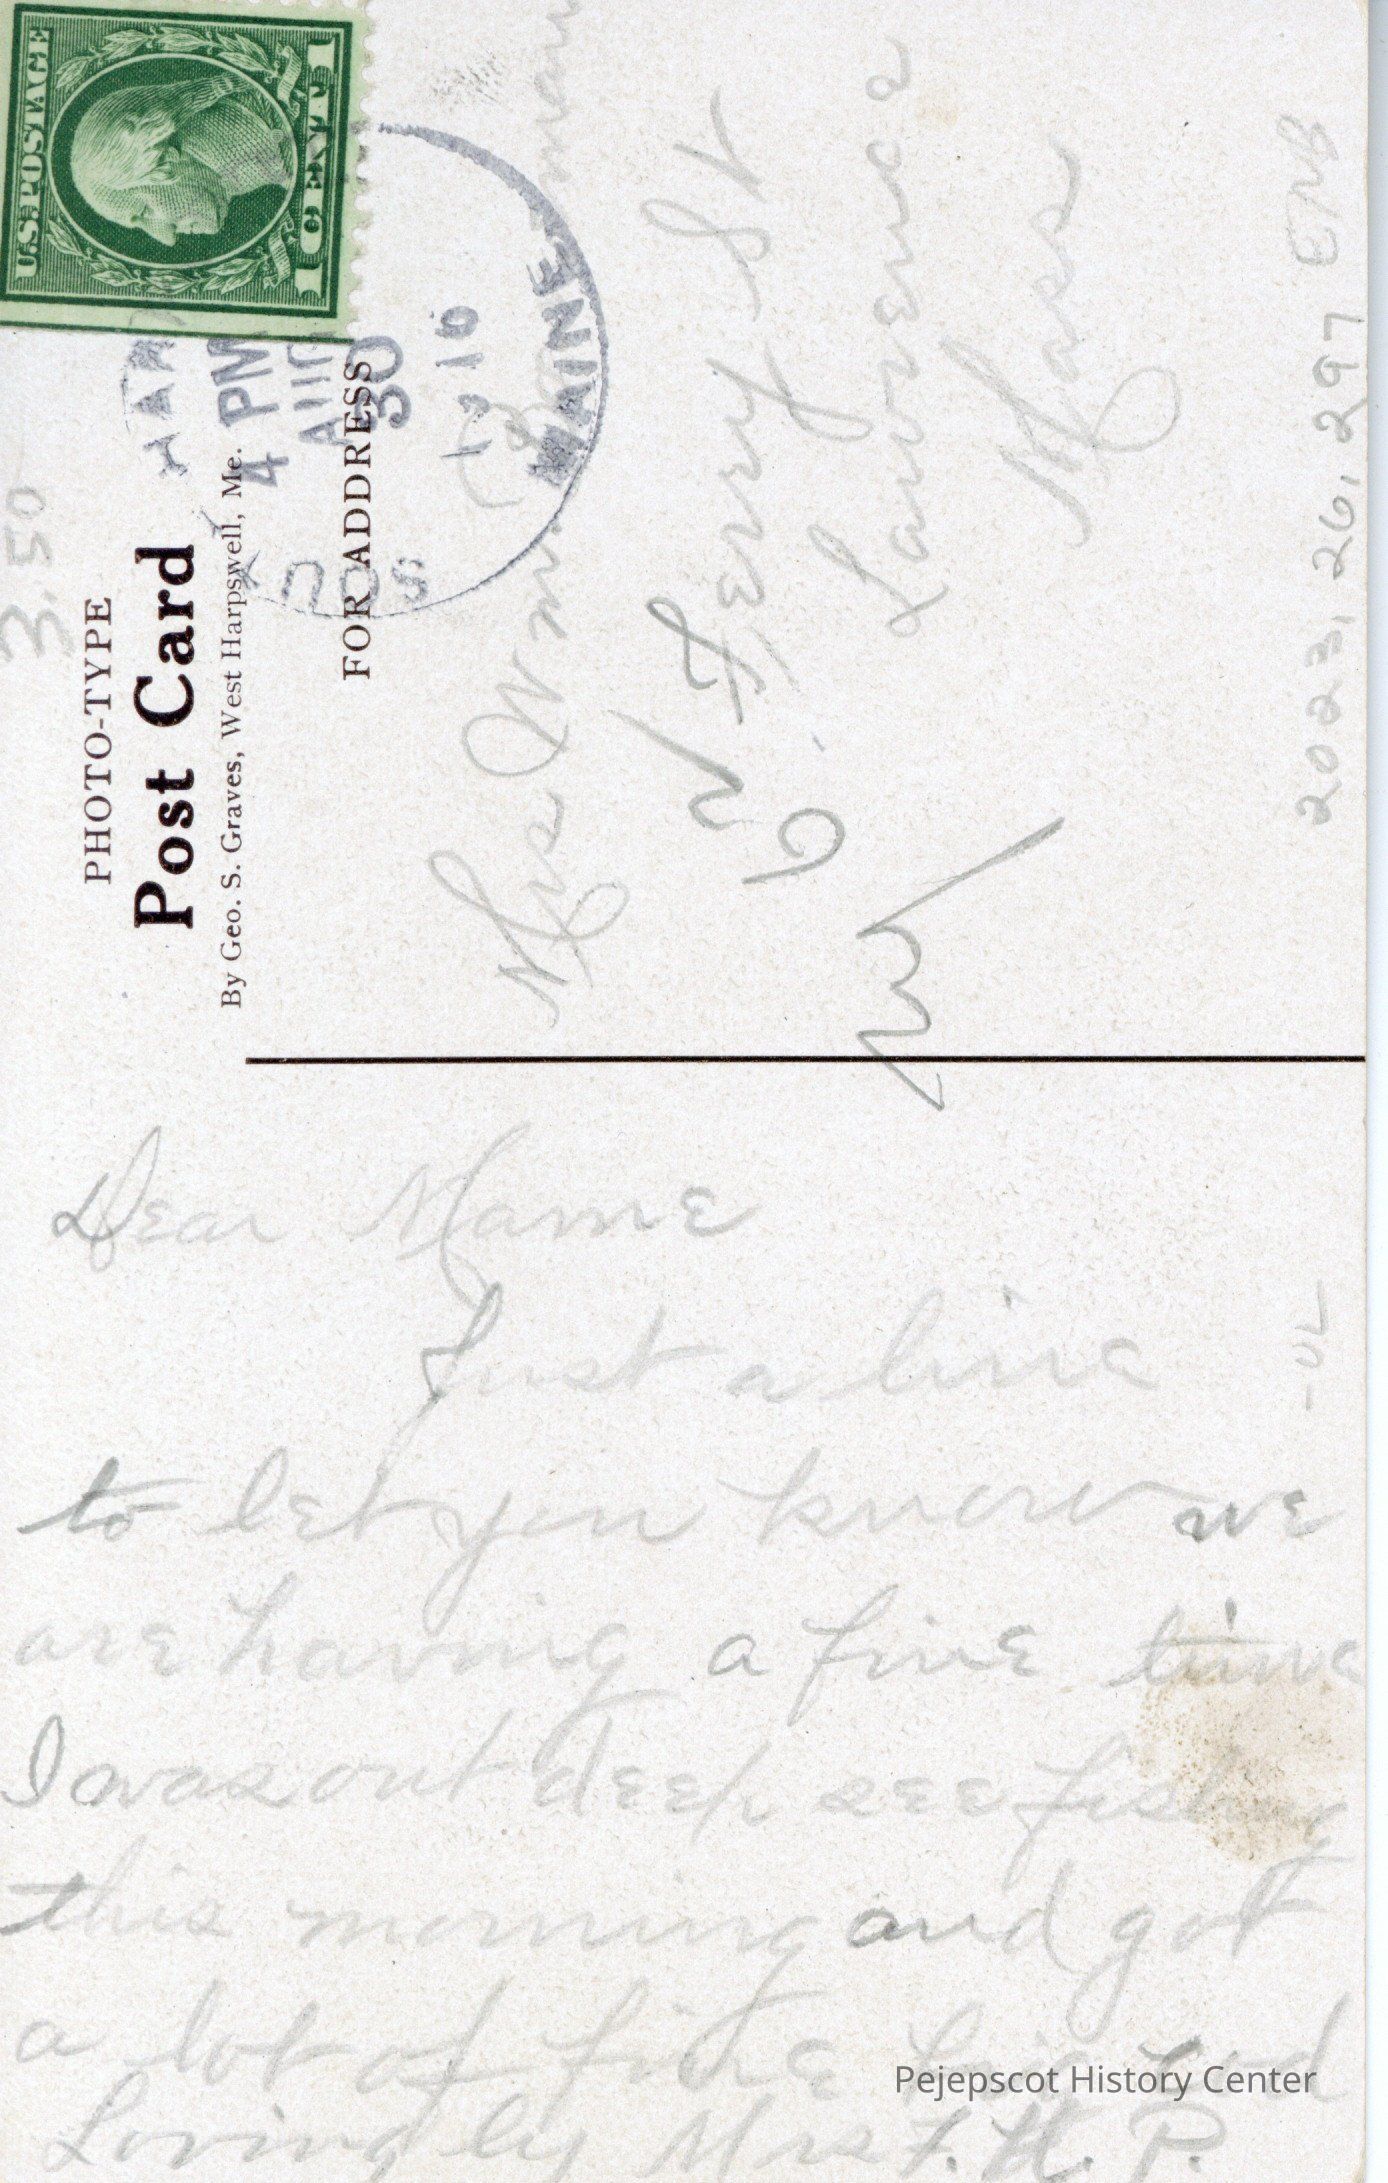 U.S. POSTAGE
1 CENT 1
PHOTO-TYPE
Post Card
By Geo. S. Graves, West Harpswell, Me.
FOR ADDRESS
4 PM
AUG
30
1916
MAINE
3.50
Mrs Wm.
Ferry St
Lawrence
Mass
2023.26.297 ENB
Dear Mame
Just a line
to let you know we
are having a fine time
I was out deep see fishing
this morning and got
a lot of fine big cod
Lovingly Mrs F. H. P.
Pejepscot History Center